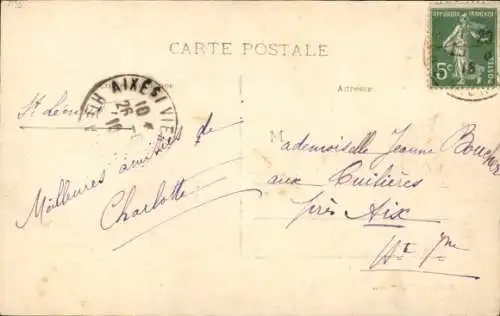 CARTE POSTALE
Adresse
RÉPUBLIQUE FRANÇAISE
5c
POSTES
AIXE S/ VIENNE
10
26
16
Meilleures amitiés de
Charlotte
Mademoiselle Jeanne
aux Cuilières
près Aix
Hte Vne